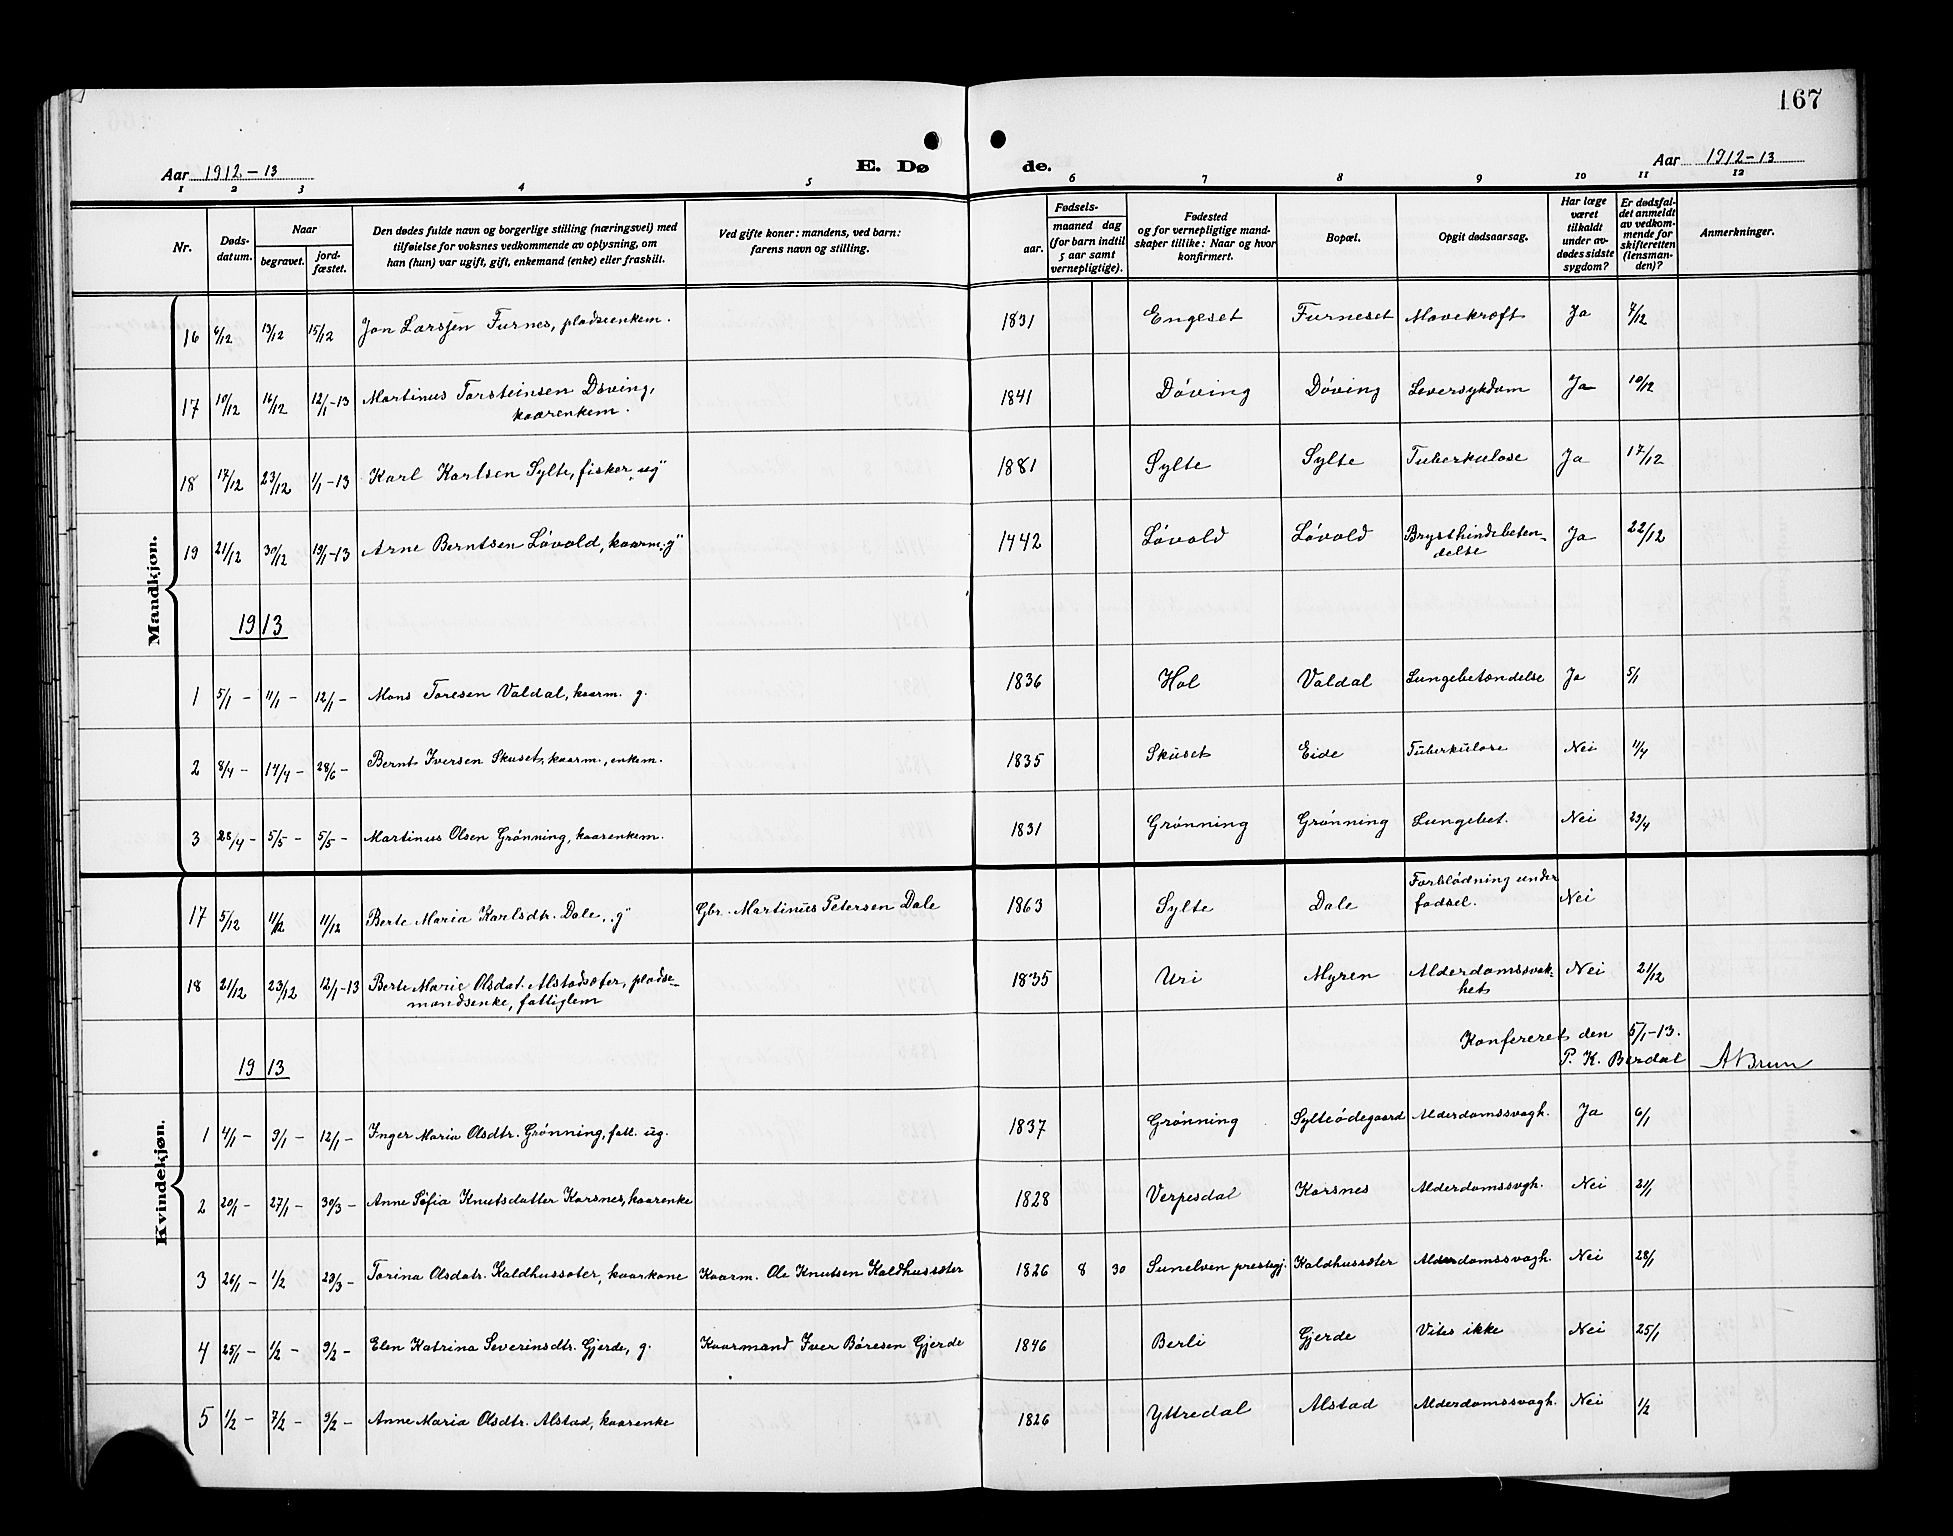 167
Aar 1912-13
E. Dø de.
Aar 1912-13
1 2 3 4 5 6 7 8 9 10 11 12
Nr.
Døds-
datum.
Naar
begravet.
jord-
fæstet.
Den dødes fulde navn og borgerlige stilling (næringsvei) med
tilføielse for voksnes vedkommende av oplysning, om
han (hun) var ugift, gift, enkemand (enke) eller fraskilt.
Ved gifte koner: mandens, ved barn:
farens navn og stilling.
Fødsels-
aar.
maaned dag
(for barn indtil
5 aar samt
vernepligtige).
Fødested
og for vernepligtige mand-
skaper tillike: Naar og hvor
konfirmert.
Bopæl.
Opgit dødsaarsag.
Har læge
været
tilkaldt
under av-
dødes sidste
sygdom?
Er dødsfal-
det anmeldt
av vedkom-
mende for
skifteretten
(lensman-
den)?
Anmerkninger.
Mandkjøn.
16 6/12 13/12 15/12 Jon Larssen Furnes, pladseenkem. 1831 Engeset Furneset Mavekræft Ja 7/12
17 10/12 16/12 12/1-13 Martinus Torsteinsen Døving,
kaarenkem. 1841 Døving Døving Leversykdom Ja 10/12
18 17/12 23/12 1/1-13 Karl Karlsen Sylte, fisker, ug" 1881 Sylte Sylte Tuberkulose Ja 17/12
19 21/12 30/12 19/1-13 Arne Berntsen Løvold, kaarm. g" 1442 Løvold Løvold Brysthindebeten-
delse Ja 22/12
1913
1 5/1 - 11/1 - 12/1 - Mons Toresen Valdal, kaarm. g. 1836 Hol Valdal Lungebetændelse Ja 5/1
2 8/4 - 14/4 - 28/6 - Bernt Iversen Skuset, kaarm., enkem. 1835 Skuset Eide Tuberkulose Nei 11/4
3 28/4 - 5/5 - 5/5 - Martinus Olsen Grønning, kaarenkem. 1831 Grønning Grønning Lungebet. Nei 29/4
Kvindekjøn.
17 5/12 11/12 11/12 Berte Maria Karlsdtr. Dale, g" Gbr. Martinus Petersen Dale 1863 Sylte Dale Forblødning under
fødsel. Nei
18 21/12 23/12 12/1-13 Berte Marie Olsdat. Alstadsæter, pladse-
mandsenke, fattiglem 1835 Uri Myren Alderdomssvak-
het Nei 21/12
Konfereret den 5/1-13.
1913 P. K. Berdal ABrun
1 4/1 - 9/1 - 12/1 - Inger Maria Olsdtr. Grønning, fatt. ug. 1837 Grønning Sylteødegaard Alderdomssvagh. Ja 6/1
2 20/1 - 27/1 - 30/3 - Anne Sofia Knutsdatter Korsnes, kaarenke 1828 Verpesdal Korsnes Alderdomssvgh. Nei 21/1
3 26/1 - 1/2 23/3 - Torina Olsdatr. Kaldhussæter, kaarkone Kaarm. Ole Knutsen Kaldhussæter 1826 8 30 Sunelven prestegj. Kaldhussæter Alderdomssvagh. Nei 28/1
4 25/1 - 1/2 - 9/2 - Elen Katrina Severinsdtr. Gjerde, g. Kaarmand Iver Båresen Gjerde 1846 Berli Gjerde Vites ikke Nei 25/1
5 1/2 - 7/2 - 9/2 - Anne Maria Olsdtr. Alstad, kaarenke 1826 Yttredal Alstad Alderdomssvagh. Nei 1/2